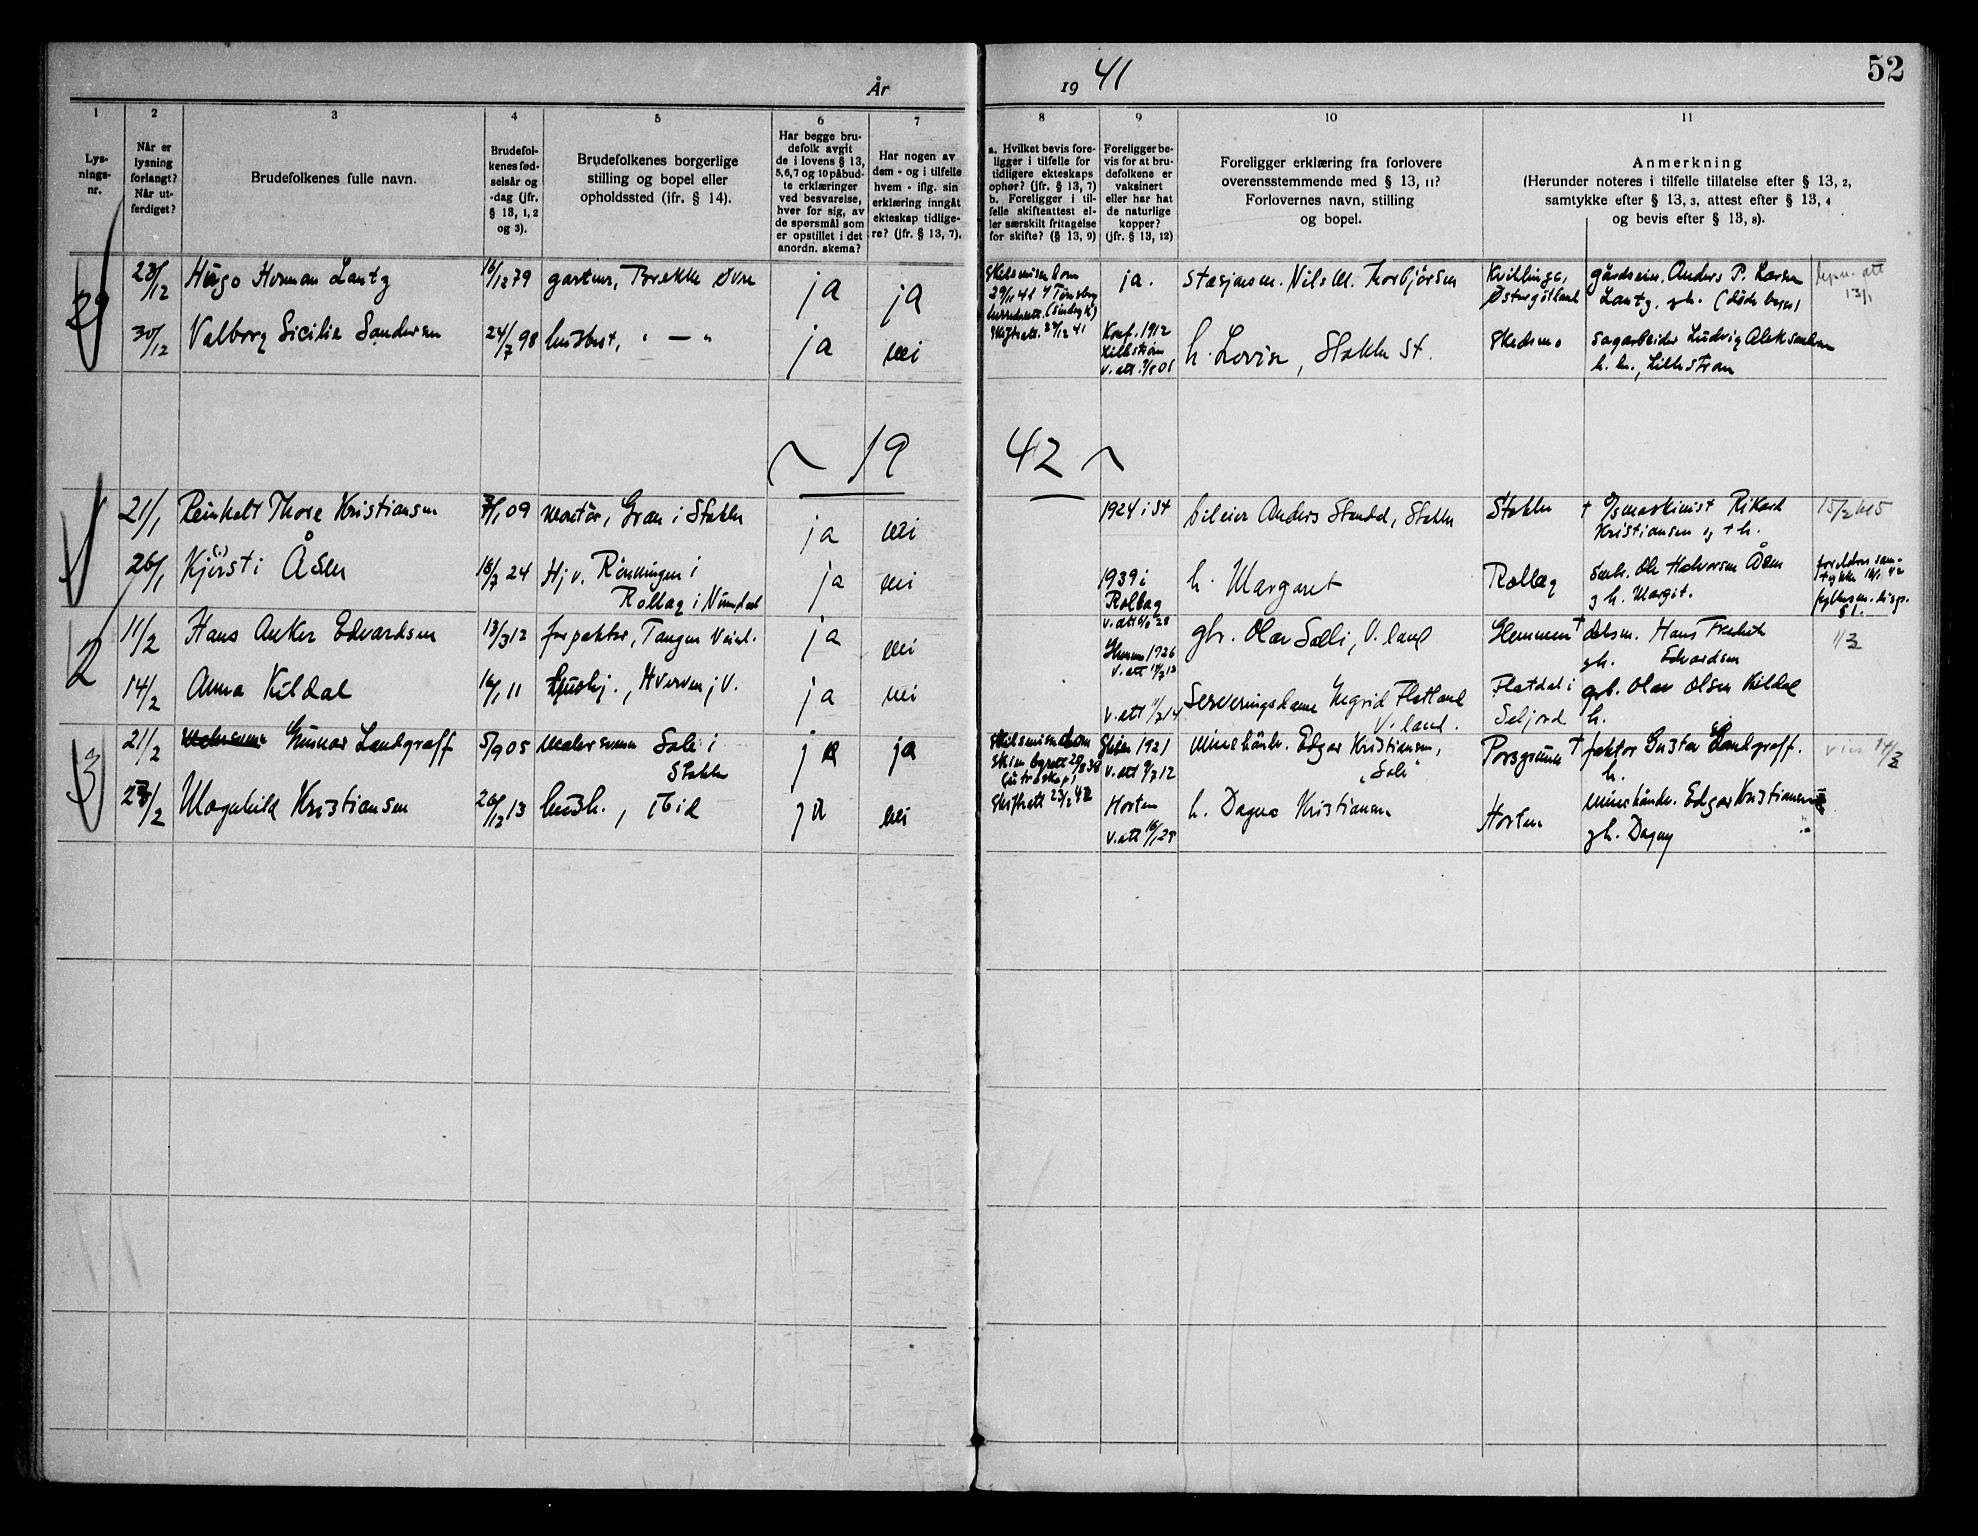 52
År 19 41
1 2 3 4 5 6 7 8 9 10 11
Lys-
nings-
nr.
Når er
lysning
forlangt?
Når ut-
ferdiget?
Brudefolkenes fulle navn.
Brudefol-
kenes fød-
selsår og
-dag (jfr.
§ 13, 1, 2
og 3).
Brudefolkenes borgerlige
stilling og bopel eller
opholdssted (jfr. § 14).
Har begge bru-
defolk avgit
de i lovens § 13,
5,6,7 og 10 påbud-
te erklæringer
ved besvarelse,
hver for sig, av
de spørsmål som
er opstillet i det
anordn. skema?
Har nogen av
dem - og i tilfelle
hvem - iflg. sin
erklæring inngåt
ekteskap tidlige-
re? (jfr. § 13, 7).
a. Hvilket bevis fore-
ligger i tilfelle for
tidligere ekteskaps
ophør? (jfr. § 13, 7)
b. Foreligger i til-
felle skifteattest el-
ler særskilt fritagelse
for skifte? (§ 13, 9)
Foreligger be-
vis for at bru-
defolkene er
vaksinert
eller har hat
de naturlige
kopper?
(jfr. § 13, 12)
Foreligger erklæring fra forlovere
overensstemmende med § 13, 11?
Forlovernes navn, stilling
og bopel.
Anmerkning
(Herunder noteres i tilfelle tillatelse efter § 13, 2,
samtykke efter § 13, 3, attest efter § 13, 4
og bevis efter § 13, 8).
29 23/12 Hugo Herman Lantz 16/12 79 gartner, Brekke Øvre ja ja 29/11 41 Tønsberg Skiftatt. 29/12 41 ja. Stasjonsm. Nils M. Thorbjörnsen Kvillinge, Østergötland gårdseier Anders P. Larsen Lantz, gh. 13/1
30/12 Valborg Sicilie Sandersen 24/7 98 husbest, " — " ja nei Konf. 1912 Lillestrøm v. att. h. Lovise, Stokke St. Skedsmo sagarbeider Ludvig Aleksandersen h. h., Lillestrøm
19 42
1 21/1 Reinholt Thore Kristiansen 09 montør, Gran i Stokke ja nei 1924 i St bileier Anders Standal, Stokke Stokke † maskinist Rikard Kristiansen og h. 15/2
26/1 Kjersti Åsen 16/7 24 Hj v. Rönningen i Rollag i Numedal ja nei 1939 i Rollag v. att h. Margaret Rollag Ole Halvorsen Åsen g h. Margit. foreldres sam-
tykke 16/1 42
2 11/2 Hans Anker Edvardsen 13/3 12 forpakter, Tangen ja nei 1926 v. att gbr. Olav Sæli, V. land Glemmen † Hans Fredrik Edvardsen gh. 1/3
14/2 Anna Kildal 16/1 11 Hushj., Hverven j V. ja nei v. att 14 Serveringsdame Ingrid Flatland V. land. Flatdal i Seljord grb. Olav Olsen Kildal h.
3 21/2 Gunnar Landgraff 5/9 05 malersvenn Sole i Stokke ja ja Skilsmissedom Skien byrett Skiftatt 23/2 42 Skien 1921 v. att 9/7 12 Minehåndv. Edgar Kristiansen, "Sole" Porsgrunn † faktor Gustav Landgraff. h. 14/3
23/2 Magnhild Kristiansen 26/12 13 hush., Ibid ja nei Horten v. att h. Dagna Kristiansen Horten Minehåndv. Edgar Kristiansen gh. Dagny